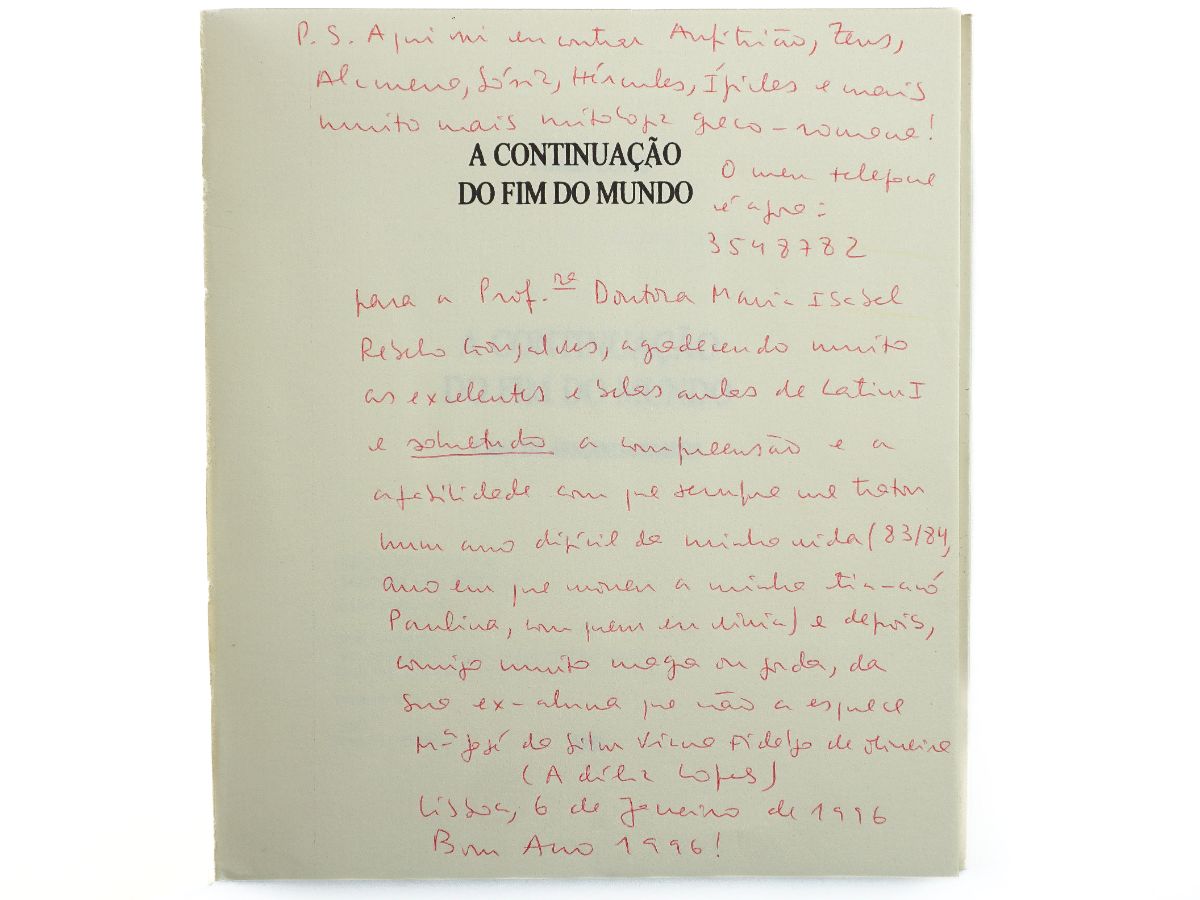 P. S. Aqui vai encontrar Anfitrião, Zeus,
Alcmena, Sósia, Hércules, Íficles e mais
muito mais mitologia greco-romana!
A CONTINUAÇÃO
DO FIM DO MUNDO
O meu telefone
é agora:
3548782
para a Prof.ra Doutora Maria Isabel
Rebelo Gonçalves, agradecendo muito
as excelentes e belas aulas de Latim I
e sobretudo a compreensão e a
afabilidade com que sempre me tratou
num ano difícil da minha vida (83/84,
ano em que morreu a minha tia-avó
Paulina, com quem eu vivia) e depois,
comigo muito magra ou gorda, da
sua ex-aluna que não a esquece
Mª José da Silva Viana Fidalgo de Oliveira
(Adília Lopes)
Lisboa, 6 de Janeiro de 1996
Bom Ano 1996!